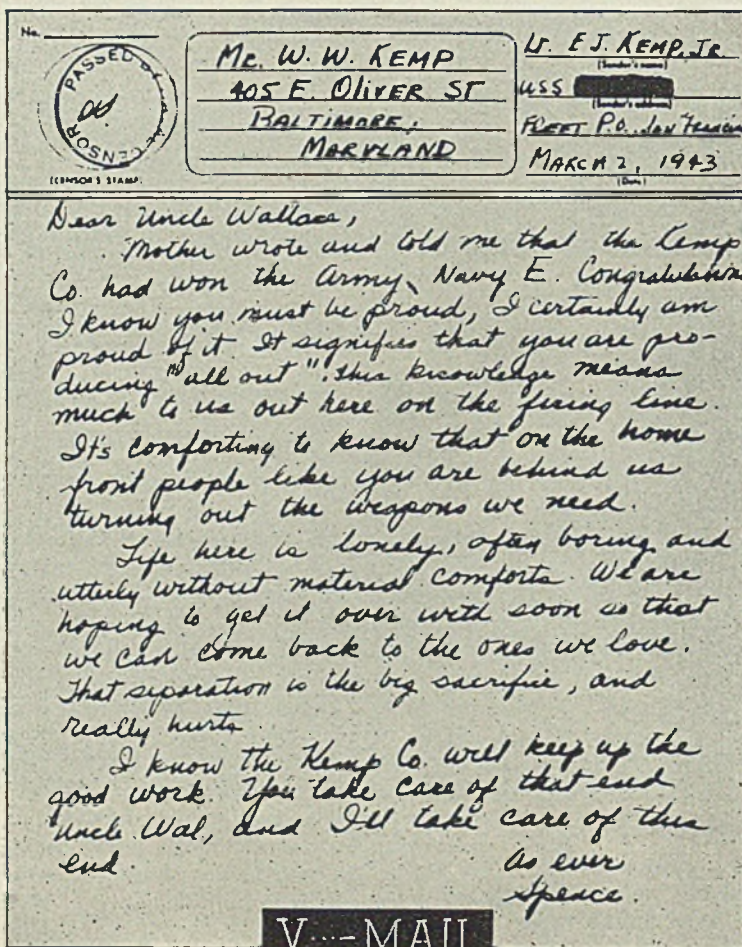 No.
PASSED BY NAVAL CENSOR
(CENSOR'S STAMP)
Mr. W. W. KEMP
405 E. OLIVER ST
BALTIMORE,
MARYLAND
Lt. E J. KEMP, JR.
(Sender's name)
USS
(Sender's address)
FLEET P.O. San Francisco
MARCH 2, 1943
(Date)
Dear Uncle Wallace,
Mother wrote and told me that the Kemp
Co. had won the Army, Navy E. Congratulations
I know you must be proud, I certainly am
proud of it It signifies that you are pro-
ducing "all out". This knowledge means
much to us out here on the firing line.
It's comforting to know that on the home
front people like you are behind us
turning out the weapons we need.
Life here is lonely, often boring and
utterly without material comforts. We are
hoping to get it over with soon so that
we can come back to the ones we love.
That separation is the big sacrifice, and
really hurts
I know the Kemp Co. will keep up the
good work. You take care of that end
Uncle Wal, and I'll take care of this
end
As ever
Spence.
V···-MAIL